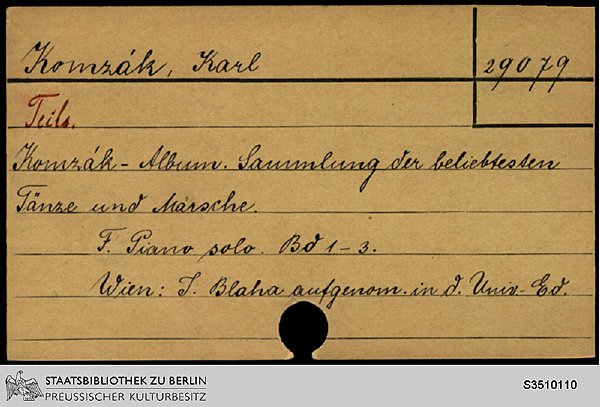 Komzák, Karl
29079
Teils.
Komzák-Album. Sammlung der beliebtesten
Tänze und Märsche.
F. Piano solo. Bd 1-3.
Wien: J. Blaha aufgenom. in d. Univ-Ed.
STAATSBIBLIOTHEK ZU BERLIN
PREUSSISCHER KULTURBESITZ
S3510110